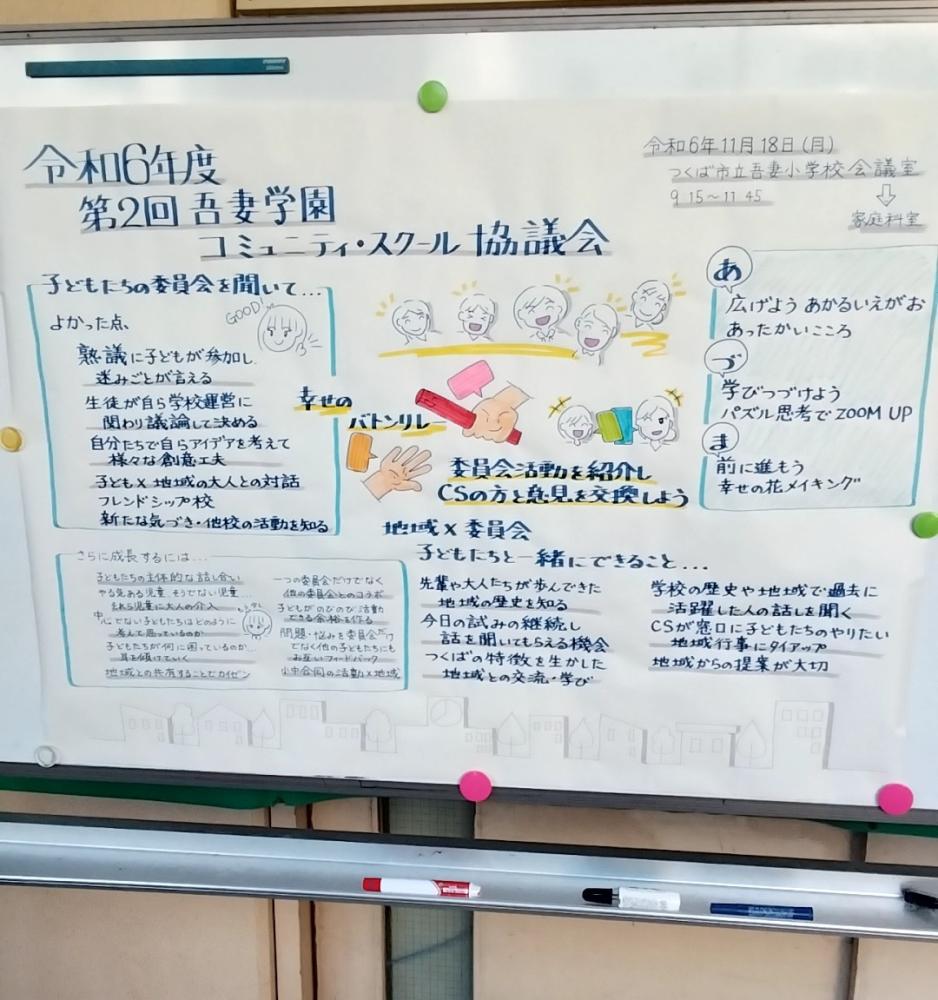 令和6年度
第2回 吾妻学園
コミュニティ・スクール 協議会
令和6年11月18日(月)
つくば市立吾妻小学校 会議室
9 15〜11 45
家庭科室
子どもたちの委員会を聞いて...
GOOD!
よかった点、
熟議に子どもが参加し
悩みごとが言える
生徒が自ら学校運営に
関わり議論して決める
自分たちで自らアイデアを考えて
様々な創意工夫
子ども×地域の大人との対話
フレンドシップ校
新たな気づき・他校の活動を知る
幸せの
バトンリレー
委員会活動を紹介し
CSの方と意見を交換しよう
あ
広げよう あかるいえがお
あったかいこころ
づ
学びつづけよう
パズル思考でZOOM UP
ま
前に進もう
幸せの花メイキング
地域×委員会
子どもたちと一緒にできること...
先輩や大人たちが歩んできた
地域の歴史を知る
今日の試みの継続し
話を聞いてもらえる機会
つくばの特徴を生かした
地域との交流・学び
学校の歴史や地域で過去に
活躍した人の話しを聞く
CSが窓口に子どもたちのやりたい
地域行事にタイアップ
地域からの提案が大切
さらに成長するには...
子どもたちの主体的な話し合い
やる気ある児童、そうでない児童...
それら児童に大人の介入
中心でない子どもたちはどのように
考えて思っているのか
子どもたちが何に困っているのか...
耳を傾けていく
地域との共有することでカイゼン
一つの委員会だけでなく
他の委員会とのコラボ
子どもがのびのび活動
できる余裕を作る
問題・悩みを委員会だけ
でなく他の子どもたちにも
お互いフィードバック
小中合同の活動×地域